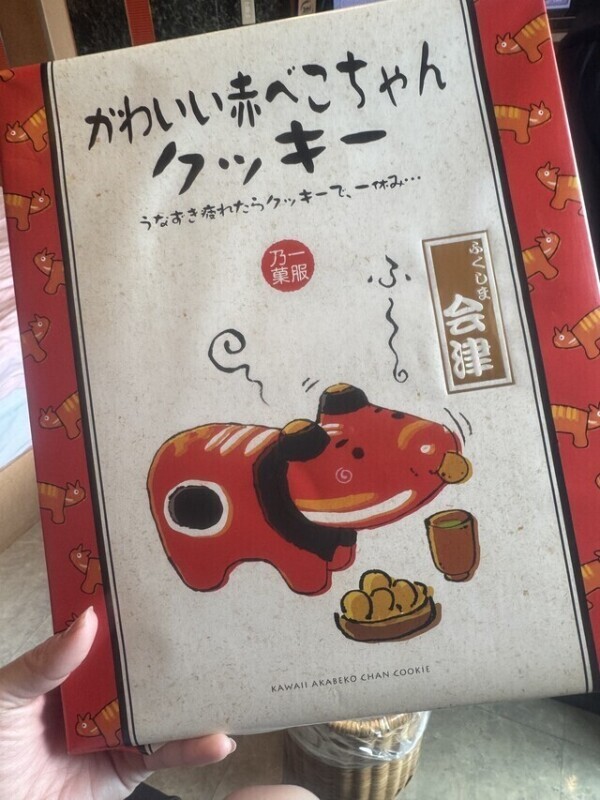 かわいい赤べこちゃん
クッキー
うなずき疲れたらクッキーで、一休み…
一服
乃菓
ふくしま
会津
ふ〜
KAWAII AKABEKO CHAN COOKIE